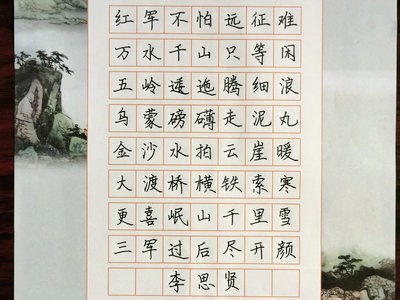 红军不怕远征难
万水千山只等闲
五岭逶迤腾细浪
乌蒙磅礴走泥丸
金沙水拍云崖暖
大渡桥横铁索寒
更喜岷山千里雪
三军过后尽开颜
李思贤